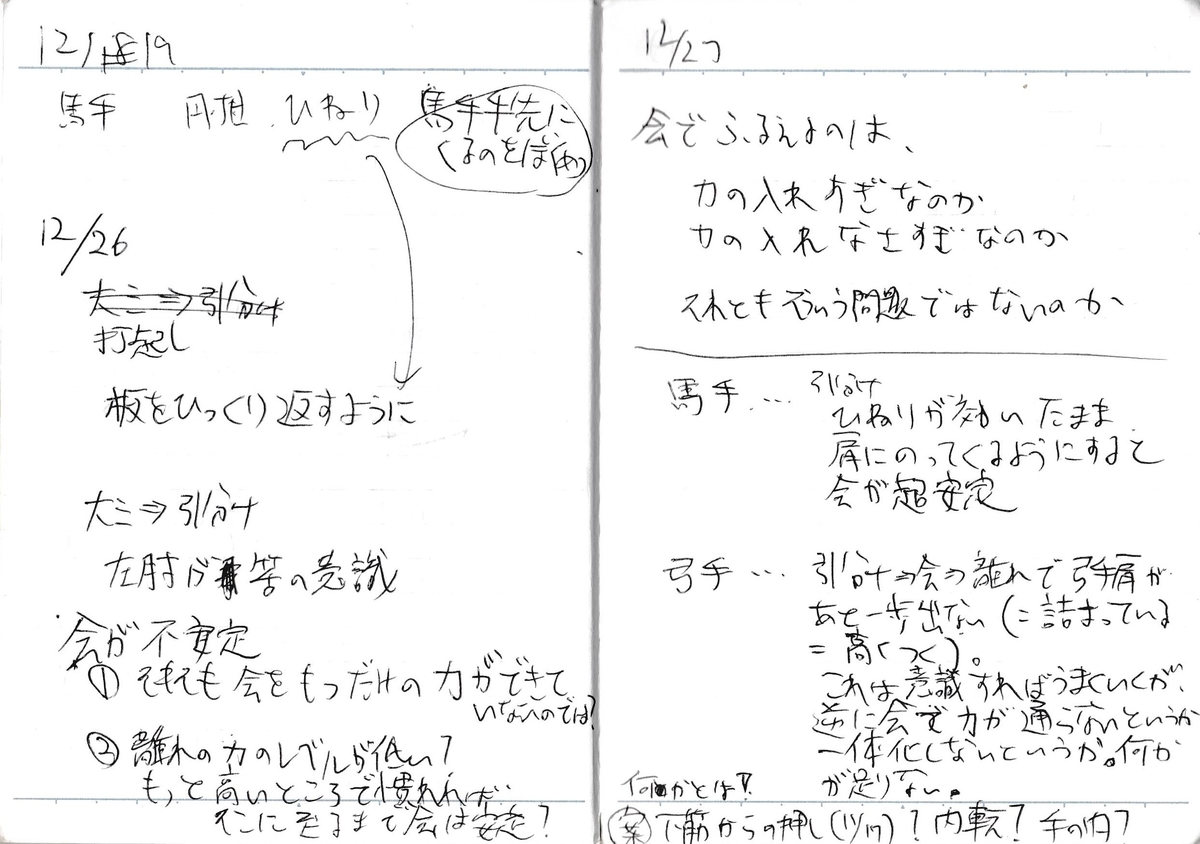 12/19
馬手 円相 ひねり 馬手手先に
くるのをぼ
12/26
大三⇒引分け
打起し
板をひっくり返すように
大三⇒引分け
左肘が の意識
会が不安定
① そもそも会をもつだけの力ができて
いないのでは?
② 離れの力のレベルが低い?
もっと高いところで慣れれば…
そこに至るまで会は安定?
12/27
会でふるえるのは、
力の入れすぎなのか
力の入れなさすぎなのか
それともそういう問題ではないのか
馬手… 引分け
ひねりが効いたまま
肩にのってくるようにすると
会が超安定
弓手… 引分け⇒会⇒離れで弓手肩が
あと一歩出ない(=詰まっている
=高くつく)。
これは意識すればうまくいくが、
逆に会で力が通らないというか
一体化しないというか。何か
が足りない。
何かとは?
案 下筋からの押し(11/17)? 内転? 手の内?